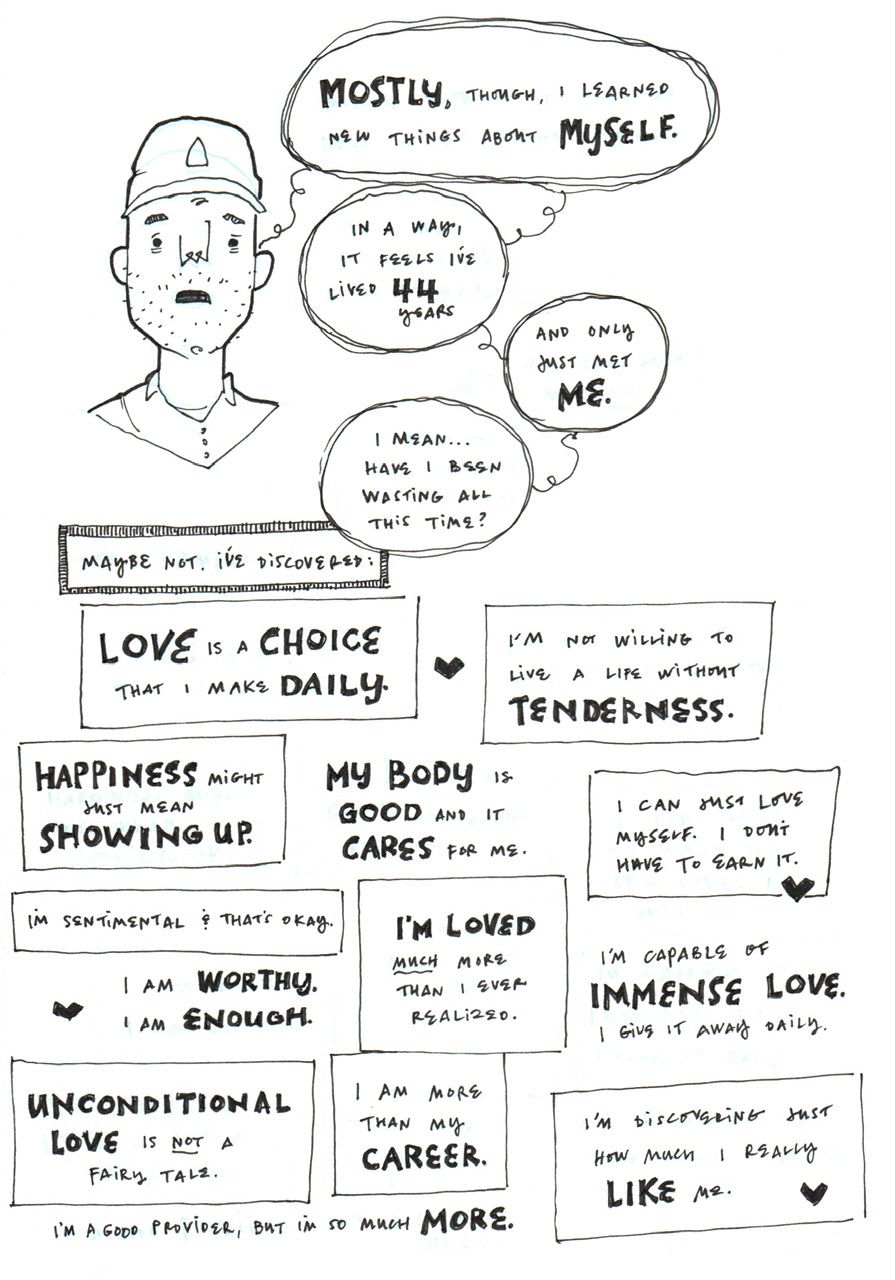 MOSTLY, THOUGH, I LEARNED
NEW THINGS ABOUT MYSELF.
IN A WAY,
IT FEELS I'VE
LIVED 44
YEARS
AND ONLY
JUST MET
ME.
I MEAN...
HAVE I BEEN
WASTING ALL
THIS TIME?
MAYBE NOT. I'VE DISCOVERED:
LOVE IS A CHOICE
THAT I MAKE DAILY.
I'M NOT WILLING TO
LIVE A LIFE WITHOUT
TENDERNESS.
HAPPINESS MIGHT
JUST MEAN
SHOWING UP.
MY BODY IS
GOOD AND IT
CARES FOR ME.
I CAN JUST LOVE
MYSELF. I DON'T
HAVE TO EARN IT.
I'M SENTIMENTAL & THAT'S OKAY.
I'M LOVED
MUCH MORE
THAN I EVER
REALIZED.
I AM WORTHY.
I AM ENOUGH.
I'M CAPABLE OF
IMMENSE LOVE.
I GIVE IT AWAY DAILY.
UNCONDITIONAL
LOVE IS NOT A
FAIRY TALE.
I AM MORE
THAN MY
CAREER.
I'M DISCOVERING JUST
HOW MUCH I REALLY
LIKE ME.
I'M A GOOD PROVIDER, BUT I'M SO MUCH MORE.